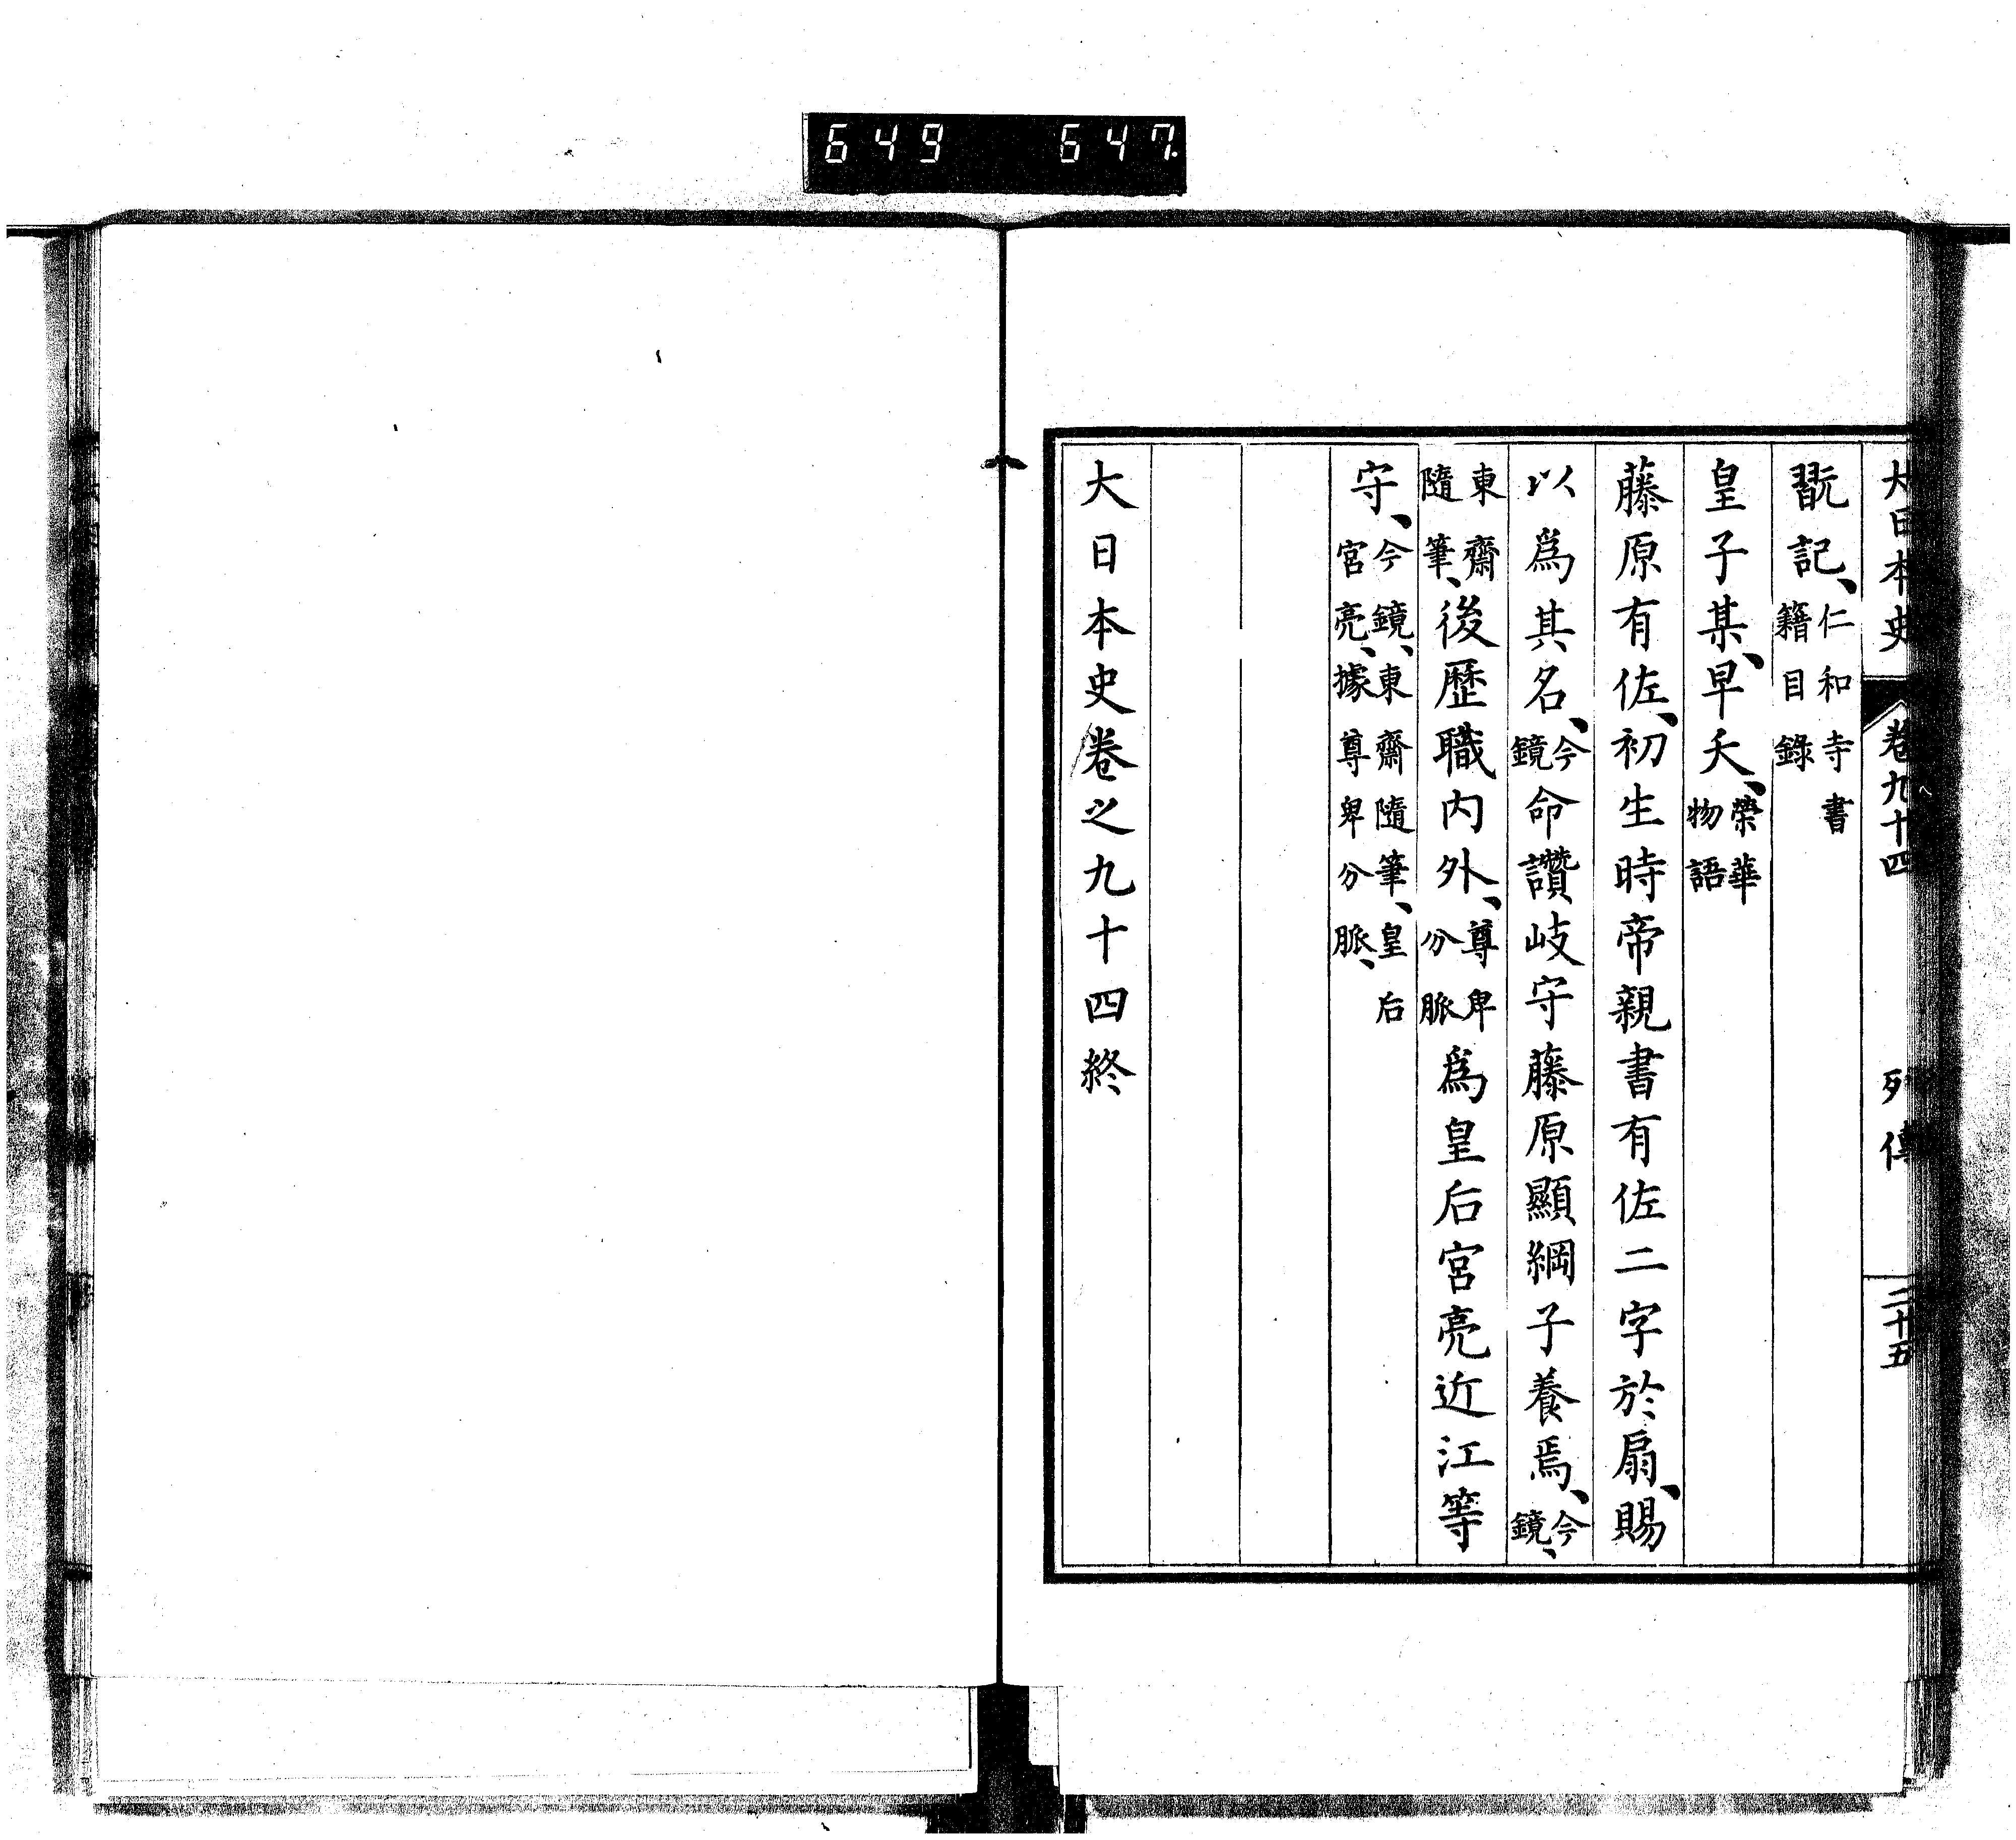 649 647
大日本史 卷九十四 列傳 二十五
翫記、仁和寺書籍目錄
皇子某、早夭、榮華物語
藤原有佐、初生時帝親書有佐二字於扇、賜
以爲其名、今鏡命讚岐守藤原顯綱子養焉、今鏡、
東齋隨筆、後歷職內外、尊卑分脈爲皇后宮亮近江等
守、今鏡、東齋隨筆、皇后宮亮、據尊卑分脈、
大日本史卷之九十四終